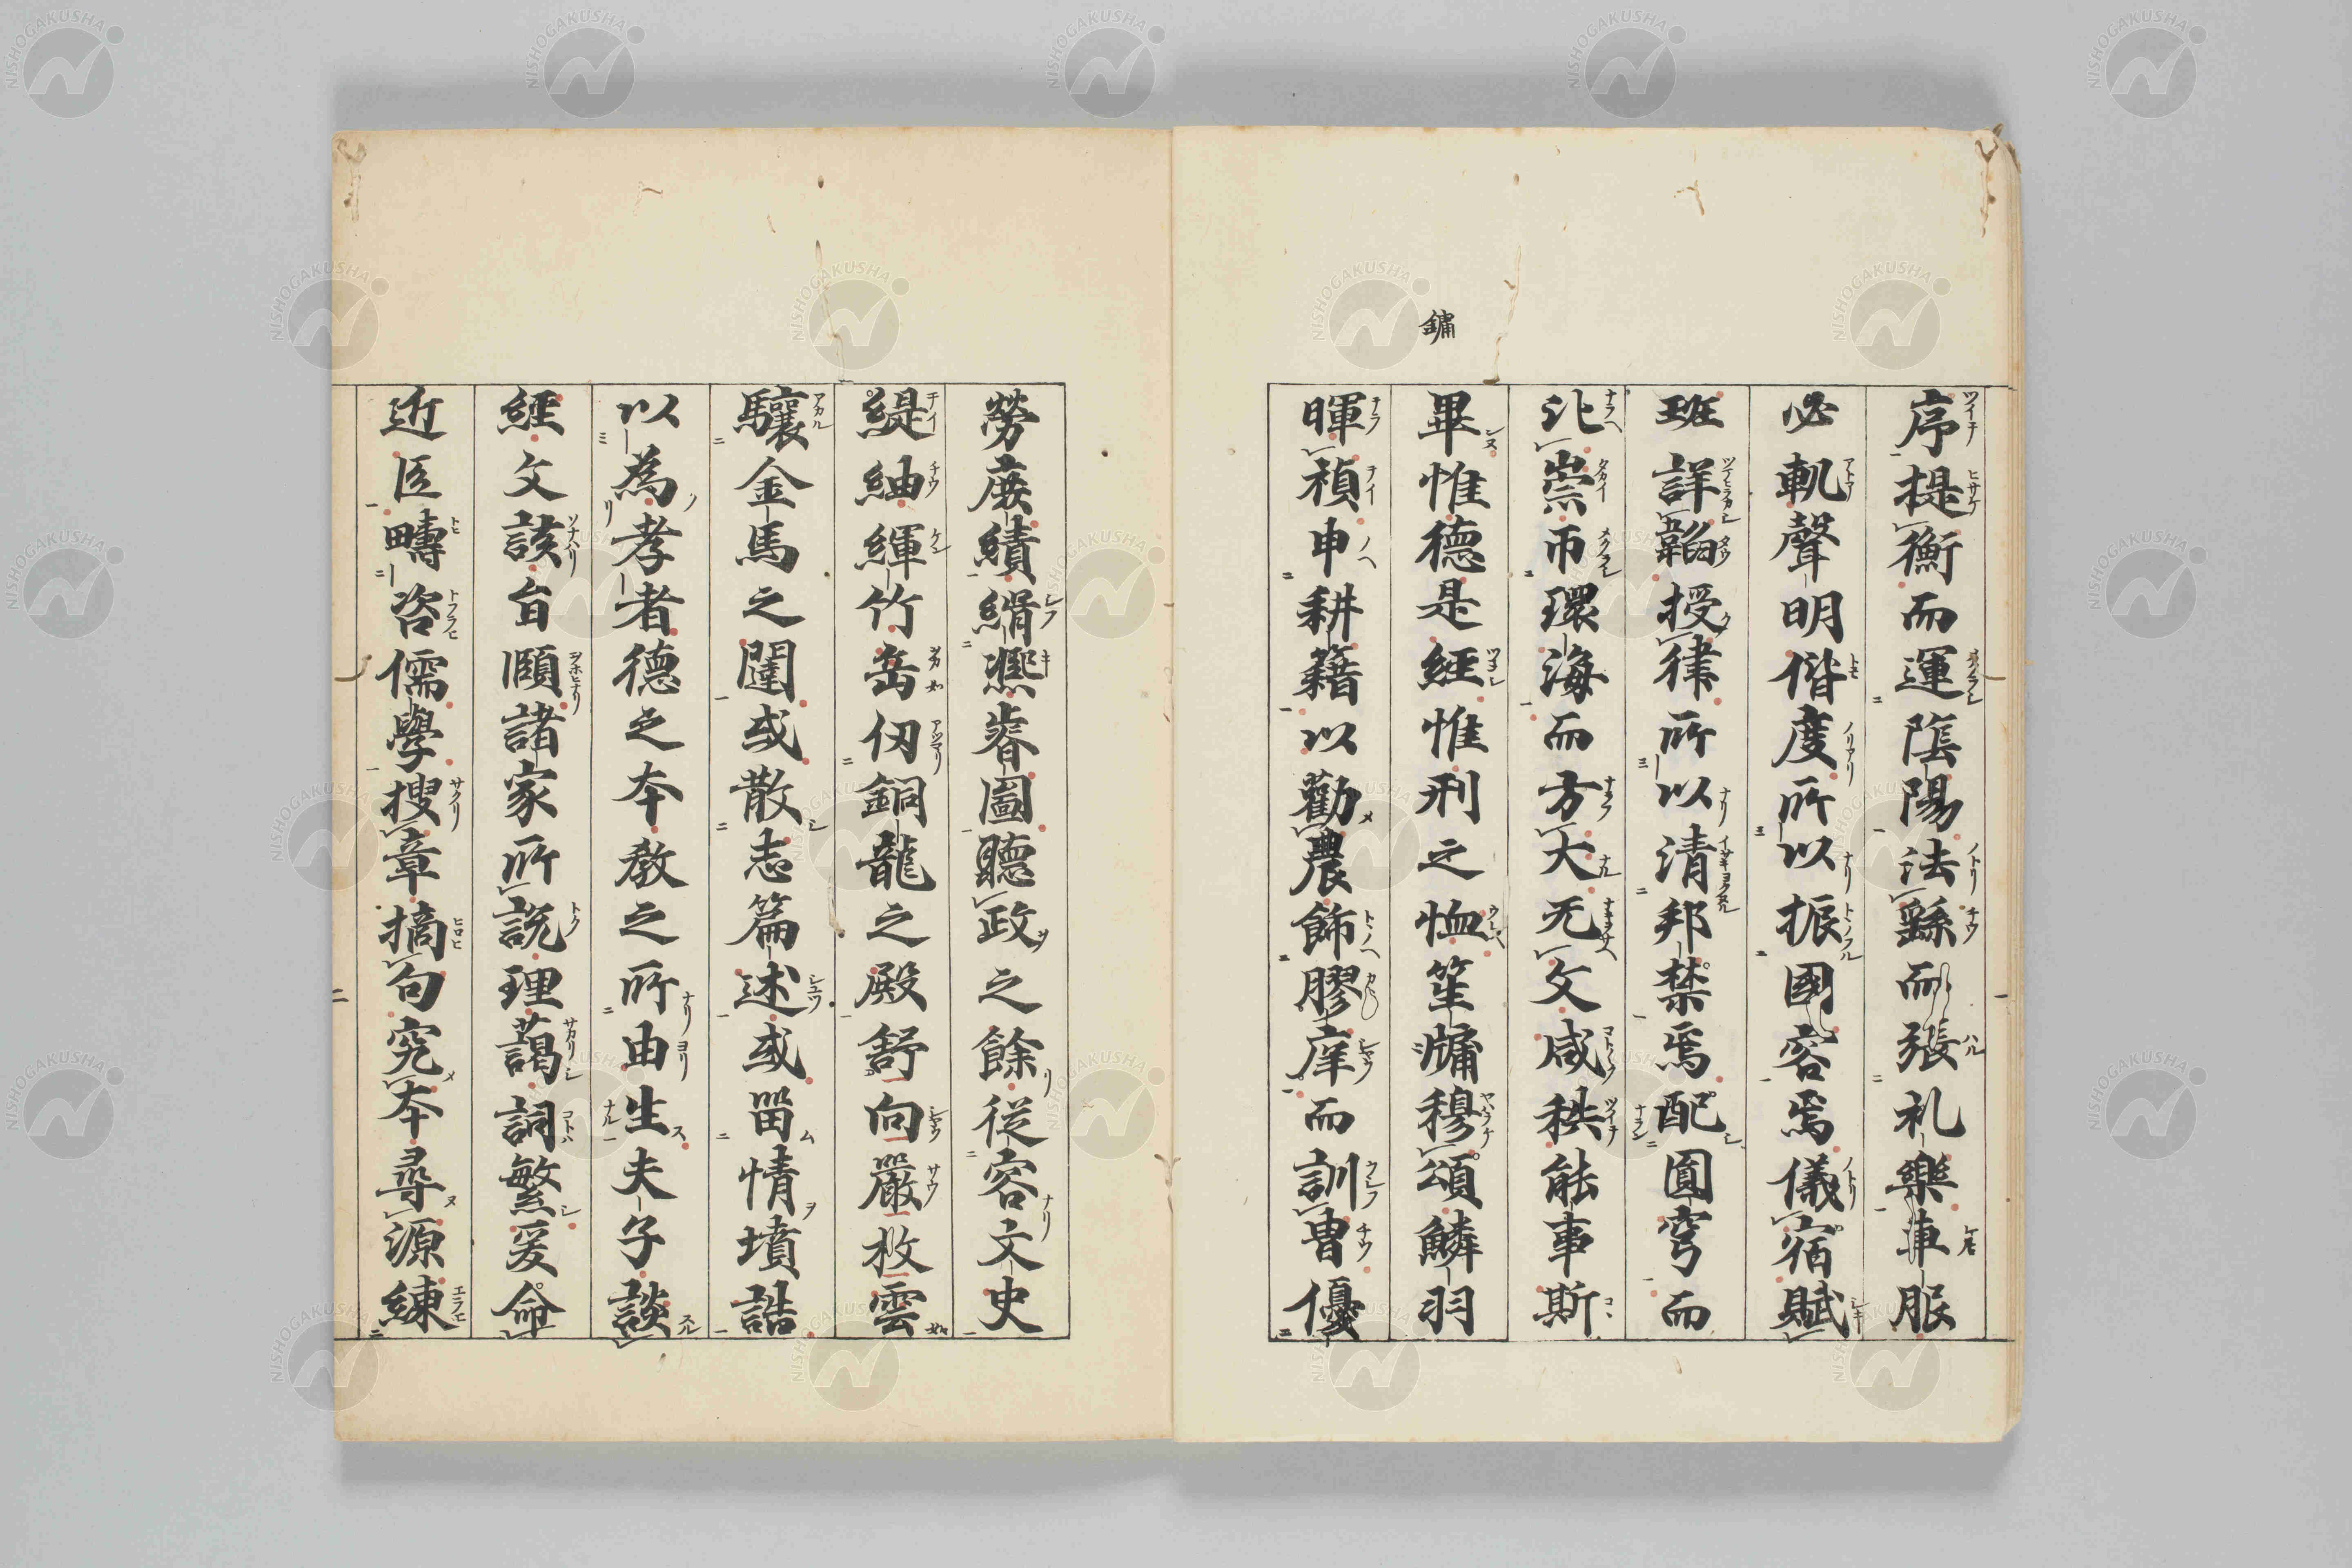 鏞
序提衡而運陰陽法繇而張礼樂車服
必軌聲明偕度所以振國容焉儀宿賦
班詳韜授律所以清邦禁焉配圓穹而
比崇帀環海而方大无文咸秩能事斯
畢惟德是經惟刑之恤笙牗穆頌鱗羽
暉禎申耕籍以勸農飾膠庠而訓冑優
勞庶績緝凞睿圖聽政之餘從容文史
緹紬緷竹岳仭銅龍之殿舒向嚴枚雲
驤金馬之闥或散志篇述或畄情墳誥
以為孝者德之夲教之所由生夫子談
經文該旨頤諸家所說理藹詞繁爰命
近臣疇咨儒學搜章摘句究夲尋源練
二
NISHOGAKUSHA